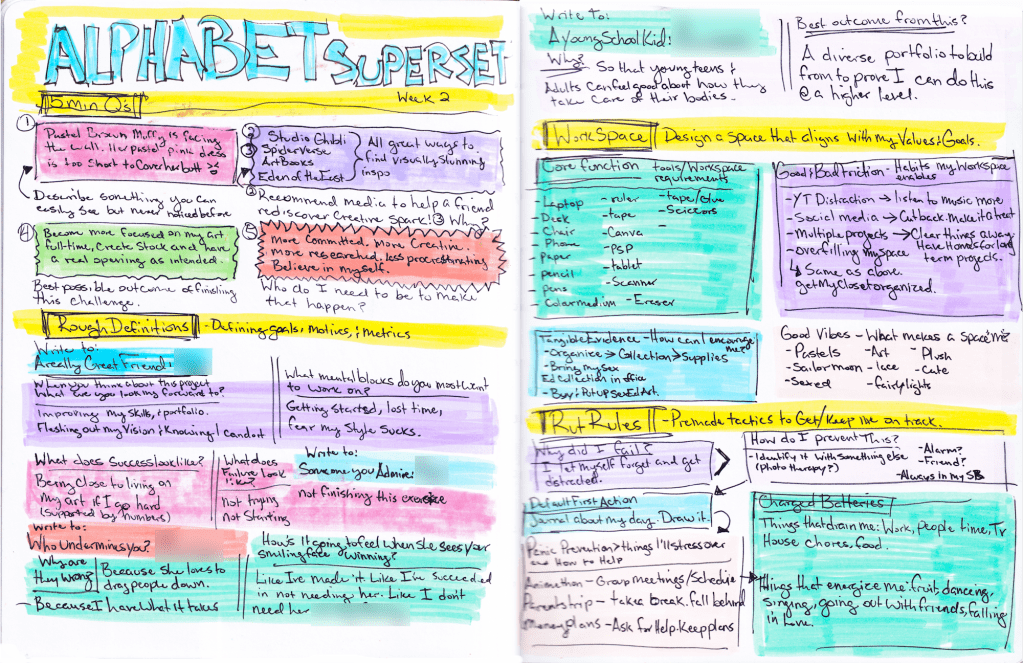 ALPHABET SUPERSET
Week 2
5 min Q's
1
Pastel Brown Muffy is facing
the wall. Her pastel pink dress
is too short to cover her butt
Describe something you can
easily see but never noticed before
2 Studio Ghibli
3 SpiderVerse
ArtBooks
Eden of the East
All great ways to
find visually stunning
inspo
2 Recommend media to help a friend
rediscover creative spark! 3 Why?
4
Become more focused on my art
full-time, Create Stock and have
a real opening as intended.
Best possible outcome of finishing
this challenge.
5
More committed. More Creative.
More researched. less procrastinating
Believe in myself.
Who do I need to be to make
that happen?
Rough Definitions - Defining goals, motives, & metrics
Write to:
A really Great Friend:
When you think about this project
What are you looking forward to?
Improving my skills, & portfolio.
Fleshing out my Vision & Knowing I can do it
What mental blocks do you most want
to work on?
Getting started, lost time,
fear my style sucks.
What does Success look like?
Being close to living on
my art if I go hard
(supported by numbers)
What does
Failure look
like?
not trying
not starting
Write to:
Someone you Admire:
not finishing this exercise
Write to:
Who Undermines you?
Why are
they wrong?
Because she loves to
drag people down.
- Because I have what it takes
How's it going to feel when she sees your
smiling face & winning?
Like I've made it. Like I've succeeded
in not needing her. Like I don't
need her
Write To:
A Young School Kid:
Why?
So that young teens &
Adults can feel good about how they
take care of their bodies.
Best outcome from this?
A diverse portfolio to build
from to prove I can do this
@ a higher level.
WorkSpace Design a space that aligns with my Values & Goals.
Core function
- Laptop
- Desk
- Chair
- Phone
- Paper
- pencil
- pens
- Color medium
tools/Workspace
requirements
- ruler
- tape
- Canva
- PSP
- tablet
- Scanner
- Eraser
- tape/glue
- Scissors
Good & Bad Friction - Habits my Workspace
enables
- YT Distraction → listen to music more
- Social media → Cut back. make it a treat
- Multiple projects → Clear things away
Have Homes for long
term projects.
- overfilling my space
↳ Same as above.
get My Closet organized.
Tangible Evidence - How can I encourage
me?
- Organize → Collection → Supplies
- Bring my sex
Ed Collection in office
- Buy & Put up Sex Ed Art.
Good Vibes - What makes a space mine
- Pastels
- Sailor moon
- Sex ed
- Art
- lace
- fairylights
- Plush
- Cute
Rut Rules - Premade tactics to Get/Keep me on track.
Why did I fail?
- I let myself forget and get
distracted.
How do I prevent This?
- Identify it with something else
(Photo therapy?)
- Alarm?
- Friend?
- Always in my SB
Default First Action
Journal about my day. Draw it.
Panic Prevention > things I'll stress over
and How to Help
- Group meetings/Schedule
Parents trip - take a break. fall behind
Money plans - Ask for Help. Keep plans
Charged Batteries
Things that drain me: Work, people time, TV
House chores, food.
Things that energize me: fruit, dancing,
singing, going out with friends, falling
in love.